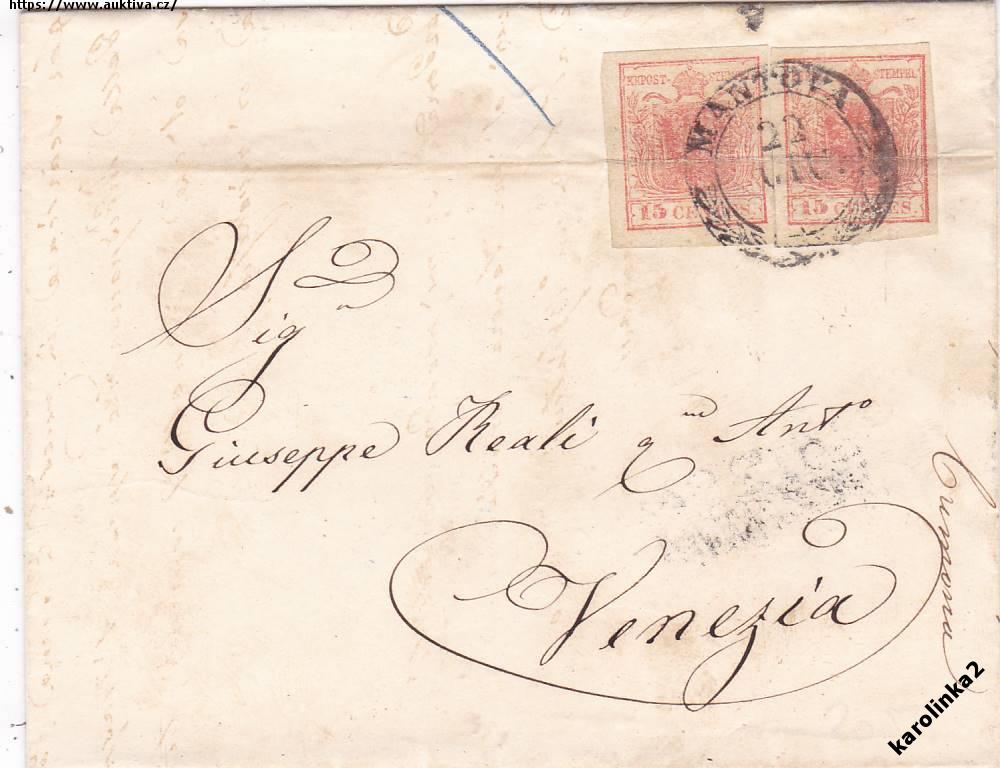 https://www.auktiva.cz/
KKPOST- STEMPEL
15 CENTES
15 CENTES
MANTOVA
22
GIU.
Sig.r
Giuseppe Reali q.m Ant.o
Venezia
karolinka2